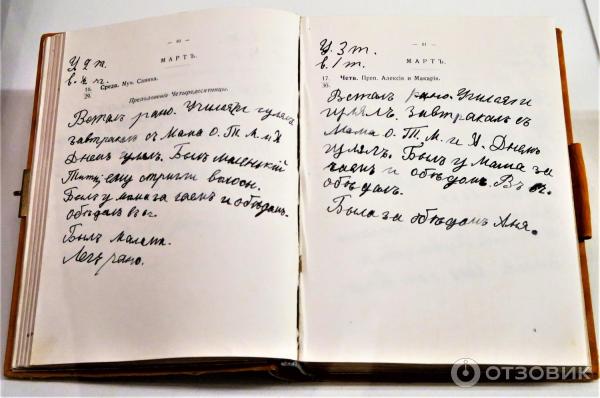 МАРТЪ.
16. Среда. Муч. Савина.
29.
Преполовеніе Четыредесятницы.
Всталъ рано. Училася и гулялъ
завтракалъ съ Мама О. Т. М. и А
Днемъ гулялъ. Былъ маленькій
ему стригли волосы.
Былъ у мама за чаемъ и обѣдомъ.
обѣдалъ въ 6.
Былъ
Легъ рано.
— 81 —
У. 3 т.
в. 1 т.
МАРТЪ.
17. Четв. Преп. Алексія и Макарія.
30.
Всталъ рано. Училася и
гулялъ. Завтракалъ съ
Мама О. Т. М. и А. Днемъ
гулялъ. Былъ у мама за
чаемъ и обѣдом. Въ 6
обѣдалъ.
Была за обѣдомъ Аня.
ОТЗОВИК